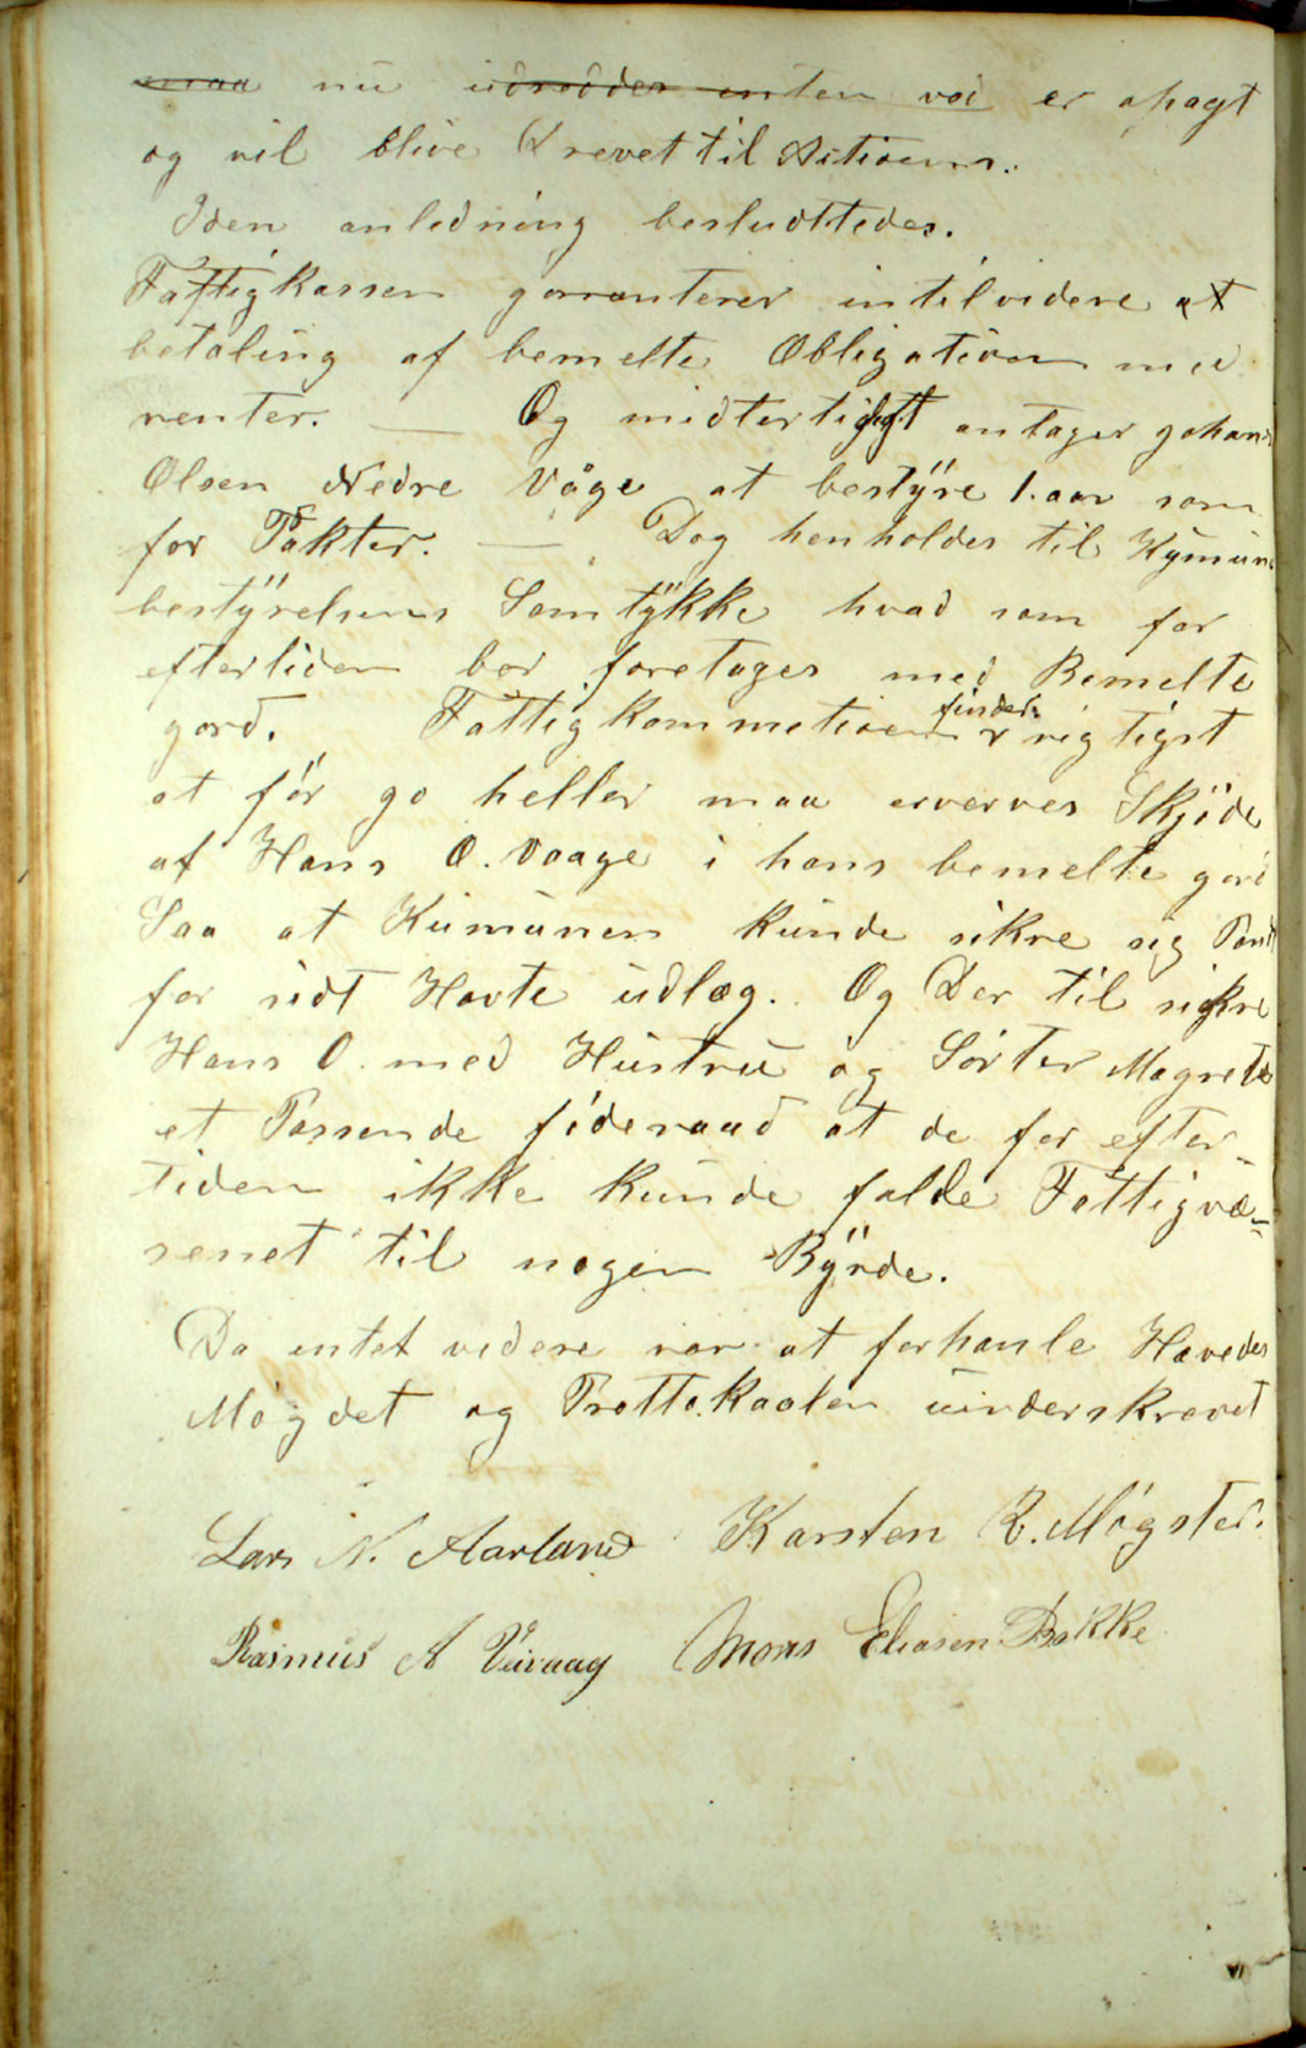 maa nu udredder enten ved er opsagt
og vil blive Krevet til Astioens.
Iden anledning besludttedes.
Fattigkassen garranterer intil videre at
betaling af bemelte Obligation med
renter. — Og midtertidigt antager Johans
Olsen Nedre Våge at bestÿre 1. aar som
for Pakter. — Dog henholdes til Kymun
bestÿrelsens Samtÿkke hvad som for
eftertiden bør foretages med Bemelte
gard. Fattigkommetioen finder rigtigst
at før go heller maa erverves Skjøde
af Hans O. Vaage i hans bemelte gard
Saa at Kumunen kunde sikre sig Pant
for sidt Havte udlæg. Og Der til sikre
Hans O. med Hustru og Søster Magrete
et Passende føderaad at de for efter-
tiden ikke kunde falde Fattigvæ-
senet til nogen Bÿrde.
Da intet videre var at forhanle Hævedes
Møgdet og Prottokaalen underskrevet
Lars N. Aarland Karsten R. Møgster.
Rasmus A Veivaag Mons Eliasen Bakke